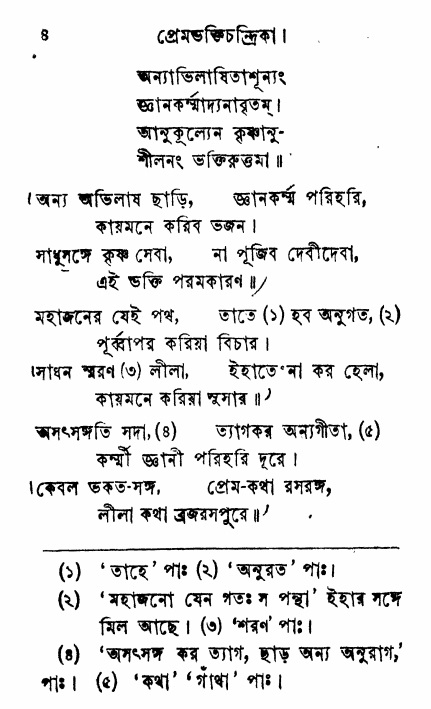 ৪ প্রেমভক্তিচন্দ্রিকা।
অন্যাভিলাষিতাশূন্যং
জ্ঞানকর্ম্মাদ্যনাবৃতম্।
আনুকূল্যেন কৃষ্ণানু-
শীলনং ভক্তিরুত্তমা॥
।অন্য অভিলাষ ছাড়ি, জ্ঞানকর্ম্ম পরিহরি,
কায়মনে করিব ভজন।
সাধুসঙ্গে কৃষ্ণ সেবা, না পূজিব দেবীদেবা,
এই ভক্তি পরমকারণ॥
মহাজনের যেই পথ, তাতে (১) হব অনুগত, (২)
পূর্ব্বাপর করিয়া বিচার।
।সাধন স্মরণ (৩) লীলা, ইহাতে না কর হেলা,
কায়মনে করিয়া সুসার॥
অসৎসঙ্গতি সদা, (৪) ত্যাগকর অন্যগীতা, (৫)
কর্ম্মী জ্ঞানী পরিহরি দূরে।
।কেবল ভকত-সঙ্গ, প্রেম-কথা রসরঙ্গ,
লীলা কথা ব্রজরসপুরে॥
(১) ‘তাহে’ পাঃ (২) ‘অনুরত’ পাঃ।
(২) ‘মহাজনো যেন গতঃ স পন্থা’ ইহার সঙ্গে
মিল আছে। (৩) ‘শরণ’ পাঃ।
(৪) ‘অসৎসঙ্গ কর ত্যাগ, ছাড় অন্য অনুরাগ,’
পাঃ। (৫) ‘কথা’ ‘গাঁথা’ পাঃ।